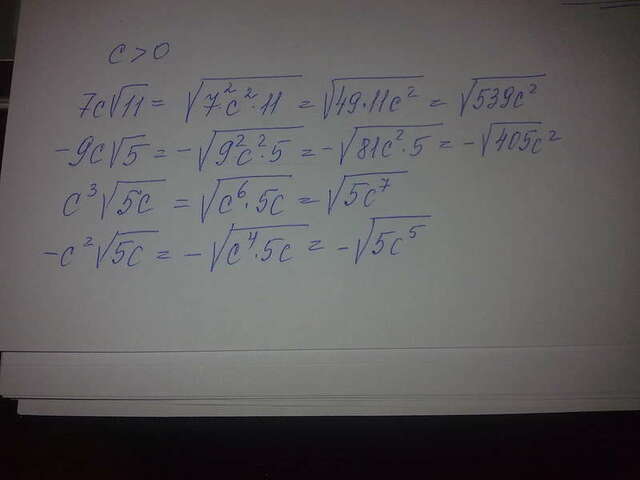 c > 0
7c√11 = √(7²·c²·11) = √(49·11c²) = √(539c²)
-9c√5 = -√(9²c²·5) = -√(81c²·5) = -√(405c²)
c³√(5c) = √(c⁶·5c) = √(5c⁷)
-c²√(5c) = -√(c⁴·5c) = -√(5c⁵)